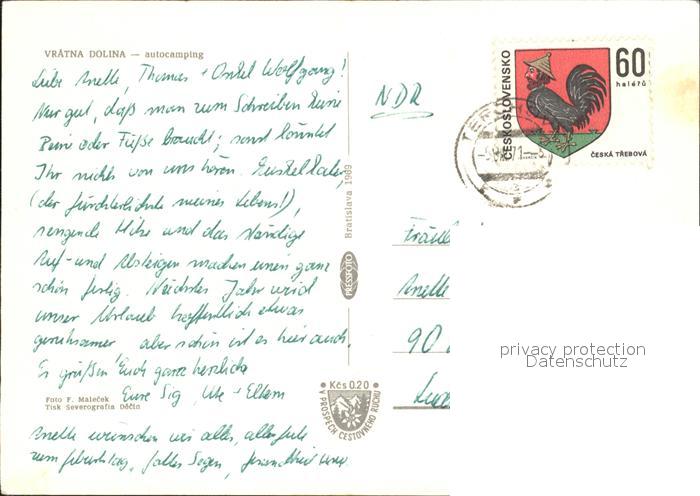 VRÁTNA DOLINA — autocamping
Liebe Anelle, Thomas + Onkel Wolfgang!
Nur gut, daß man zum Schreiben keine
Bein oder Füße braucht; sonst könntet
Ihr nichts von uns hören. Muskelkater
(der fürchterlichste meines Lebens!),
sengende Hitze und das ständige
Auf- und Absteigen machen einen ganz
schön fertig. Nächstes Jahr wird
unser Urlaub hoffentlich etwas
geruhsamer aber schön ist es hier auch.
Es grüßen Euch ganz herzlich
Eure Sig, Ute + Eltern
Foto F. Maleček
Tisk Severografia Děčín
Anelle wünschen wir alles, alles Gute
zum Geburtstag, Gottes Segen, Gesundheit
Bratislava 1969
PRESSFOTO
Kčs 0.20
V PROSPECH CESTOVNÉHO RUCHU
NDR
ČESKOSLOVENSKO
60
haléřů
ČESKÁ TŘEBOVÁ
Fräule
Anelle
90
privacy protection
Datenschutz